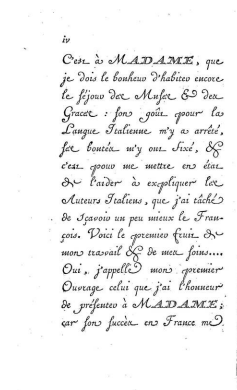 iv
C'est à MADAME, que
je dois le bonheur d'habiter encore
le séjour des Muses & des
Graces : son goût pour la
Langue Italienne m'y a arrêté,
ses bontés m'y ont fixé, &
c'est pour me mettre en état
de l'aider à expliquer les
Auteurs Italiens, que j'ai tâché
de sçavoir un peu mieux le Fran-
çois. Voici le premier fruit de
mon travail & de mes soins....
Oui, j'appelle mon premier
Ouvrage celui que j'ai l'honneur
de présenter à MADAME;
car son succès en France me